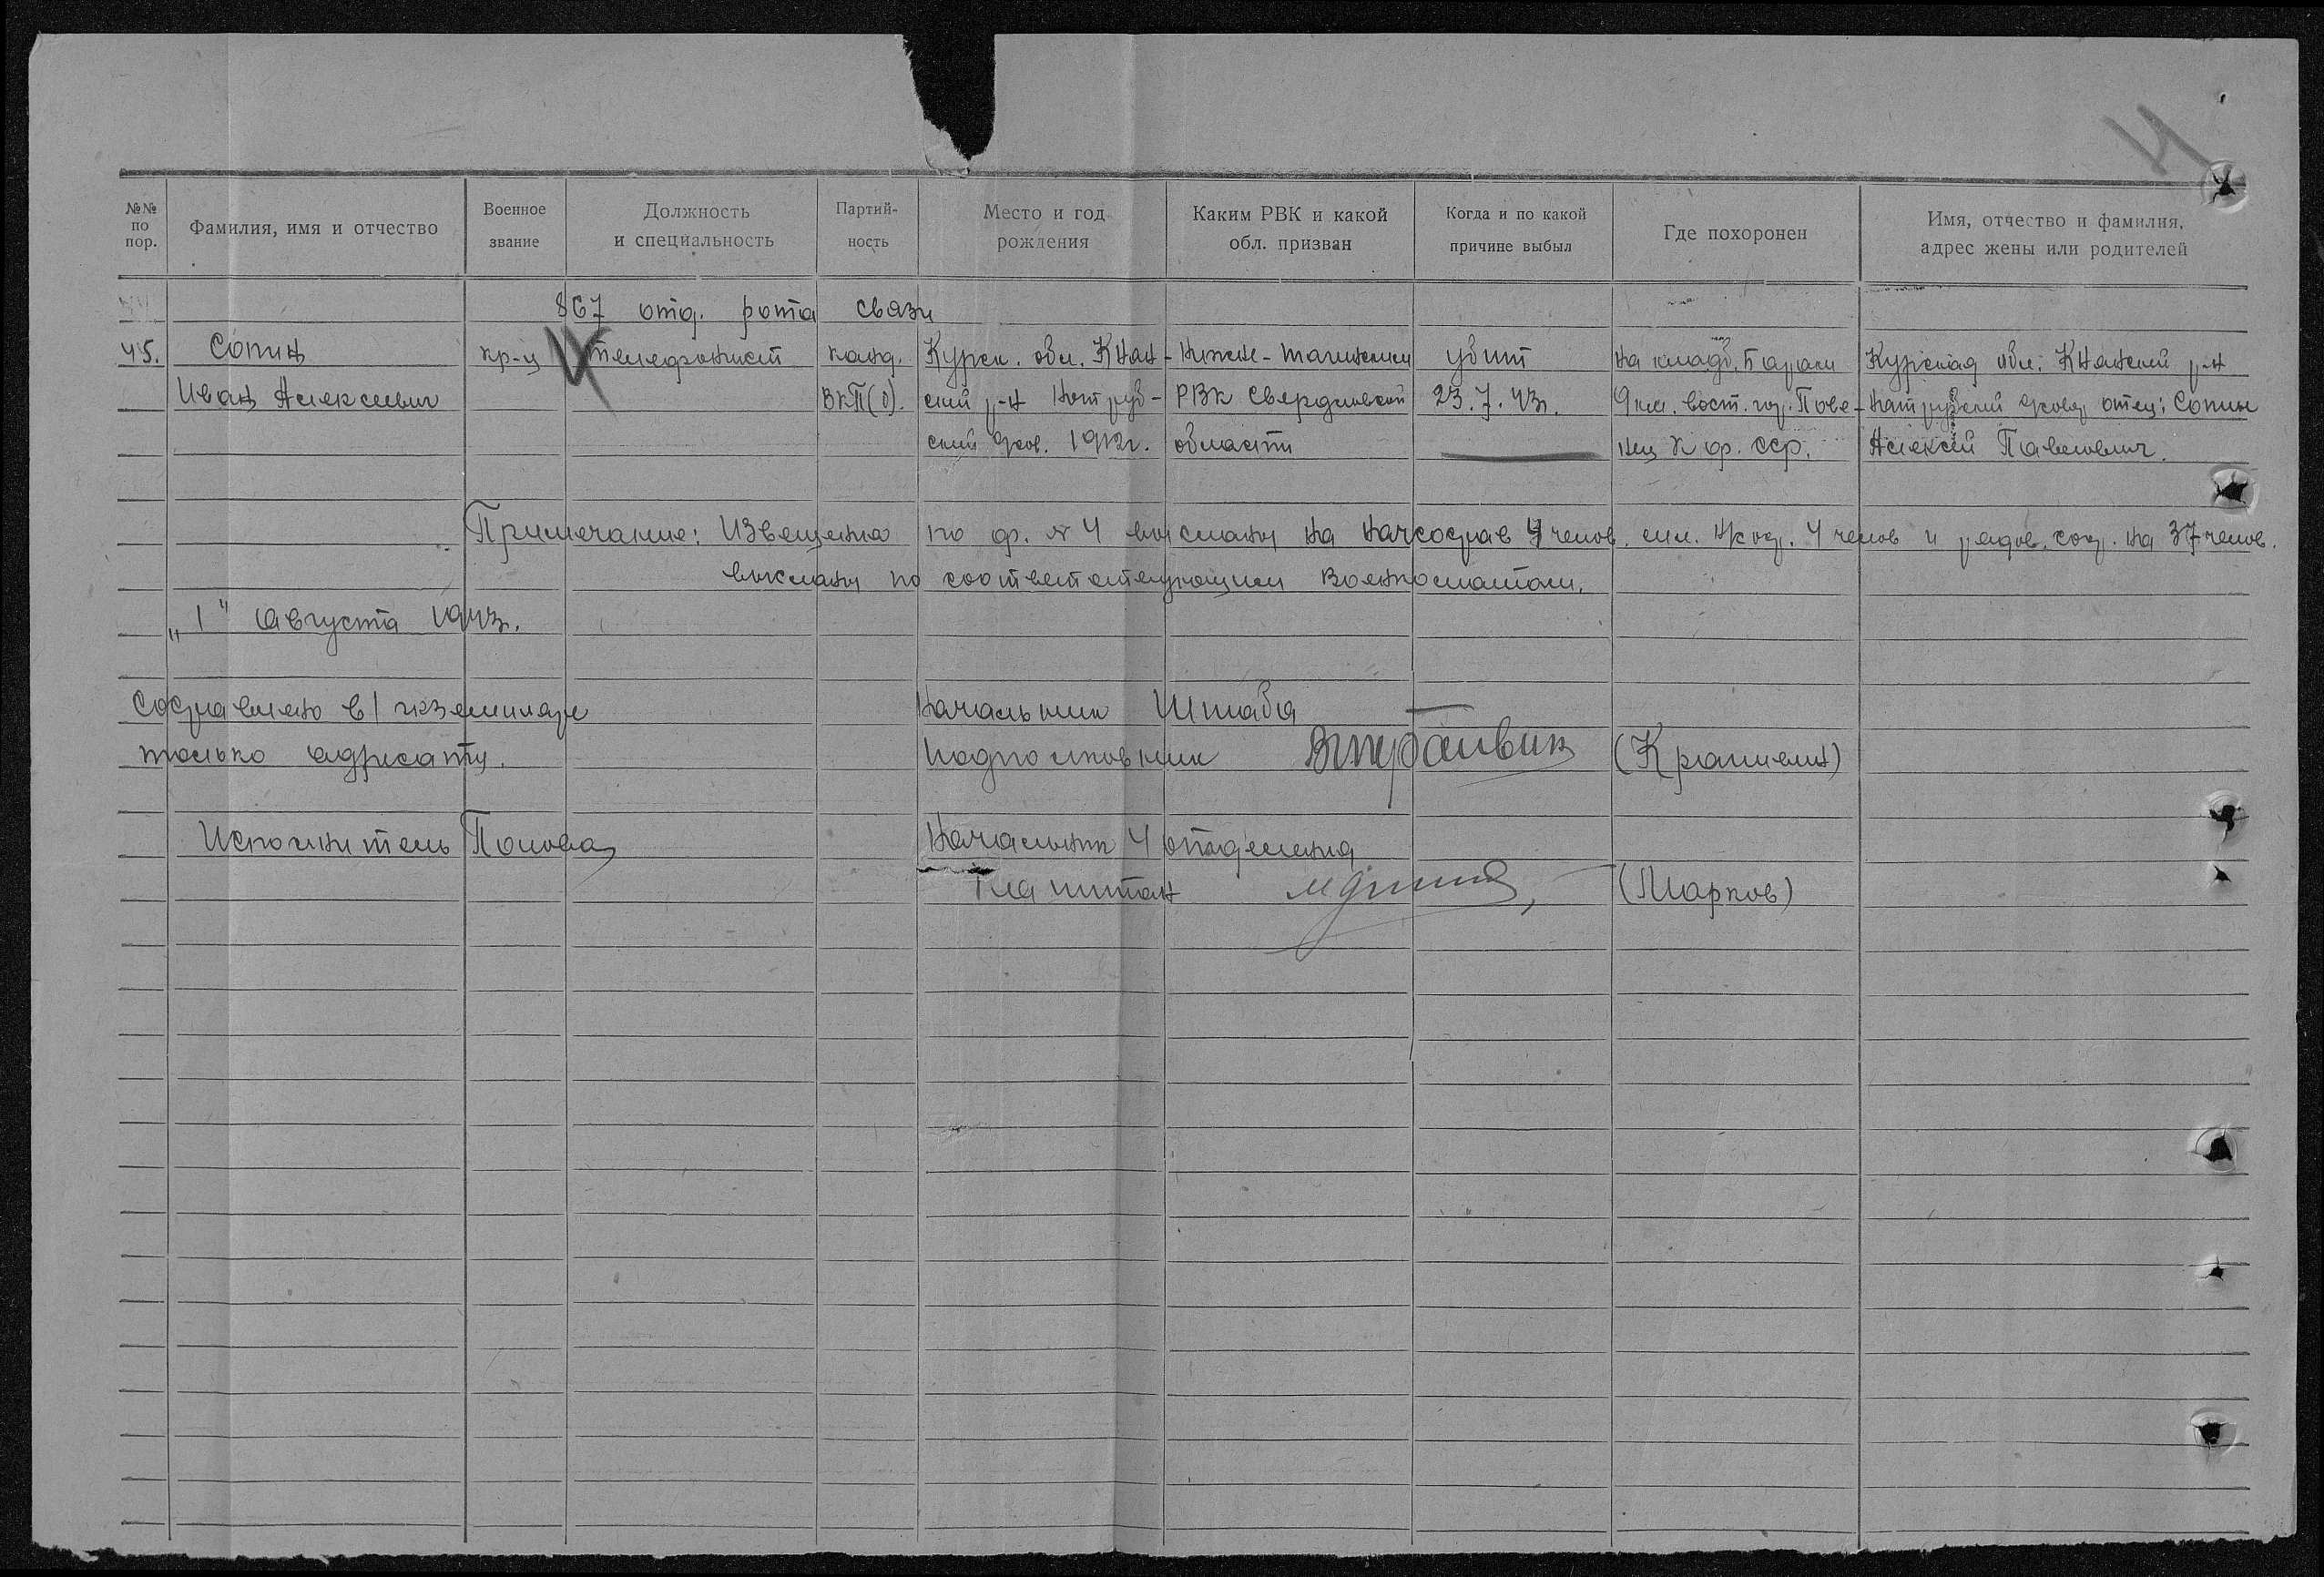 4
№№ по пор.
Фамилия, имя и отчество
Военное звание
Должность и специальность
Партийность
Место и год рождения
Каким РВК и какой обл. призван
Когда и по какой причине выбыл
Где похоронен
Имя, отчество и фамилия, адрес жены или родителей
867 отд. рота связи
45. Сопин кр-ц телефонист канд. Курск. обл. Нижне-Тагильский убит на кладб. Курская обл.
Иван Алексеевич ВКП(б). ский р-н РВК Свердловской 23.7.43г. 9 км. вост. гор. Пове- отец: Сопин
1912г. области нец К.ф. сср. Алексей Павлович.
Примечание: Извещения по ф. № 4 высланы на начсостав 4 челов. мл. 4 челов и рядов. на 37 челов.
высланы по соответствующим Военкоматам.
„1“ августа 1943г.
Составлено в 1 экземпляре
только адресату.
Начальник Штаба
Подполковник
Исполнитель Попова
Начальник 4 отделения
Капитан (Марков)